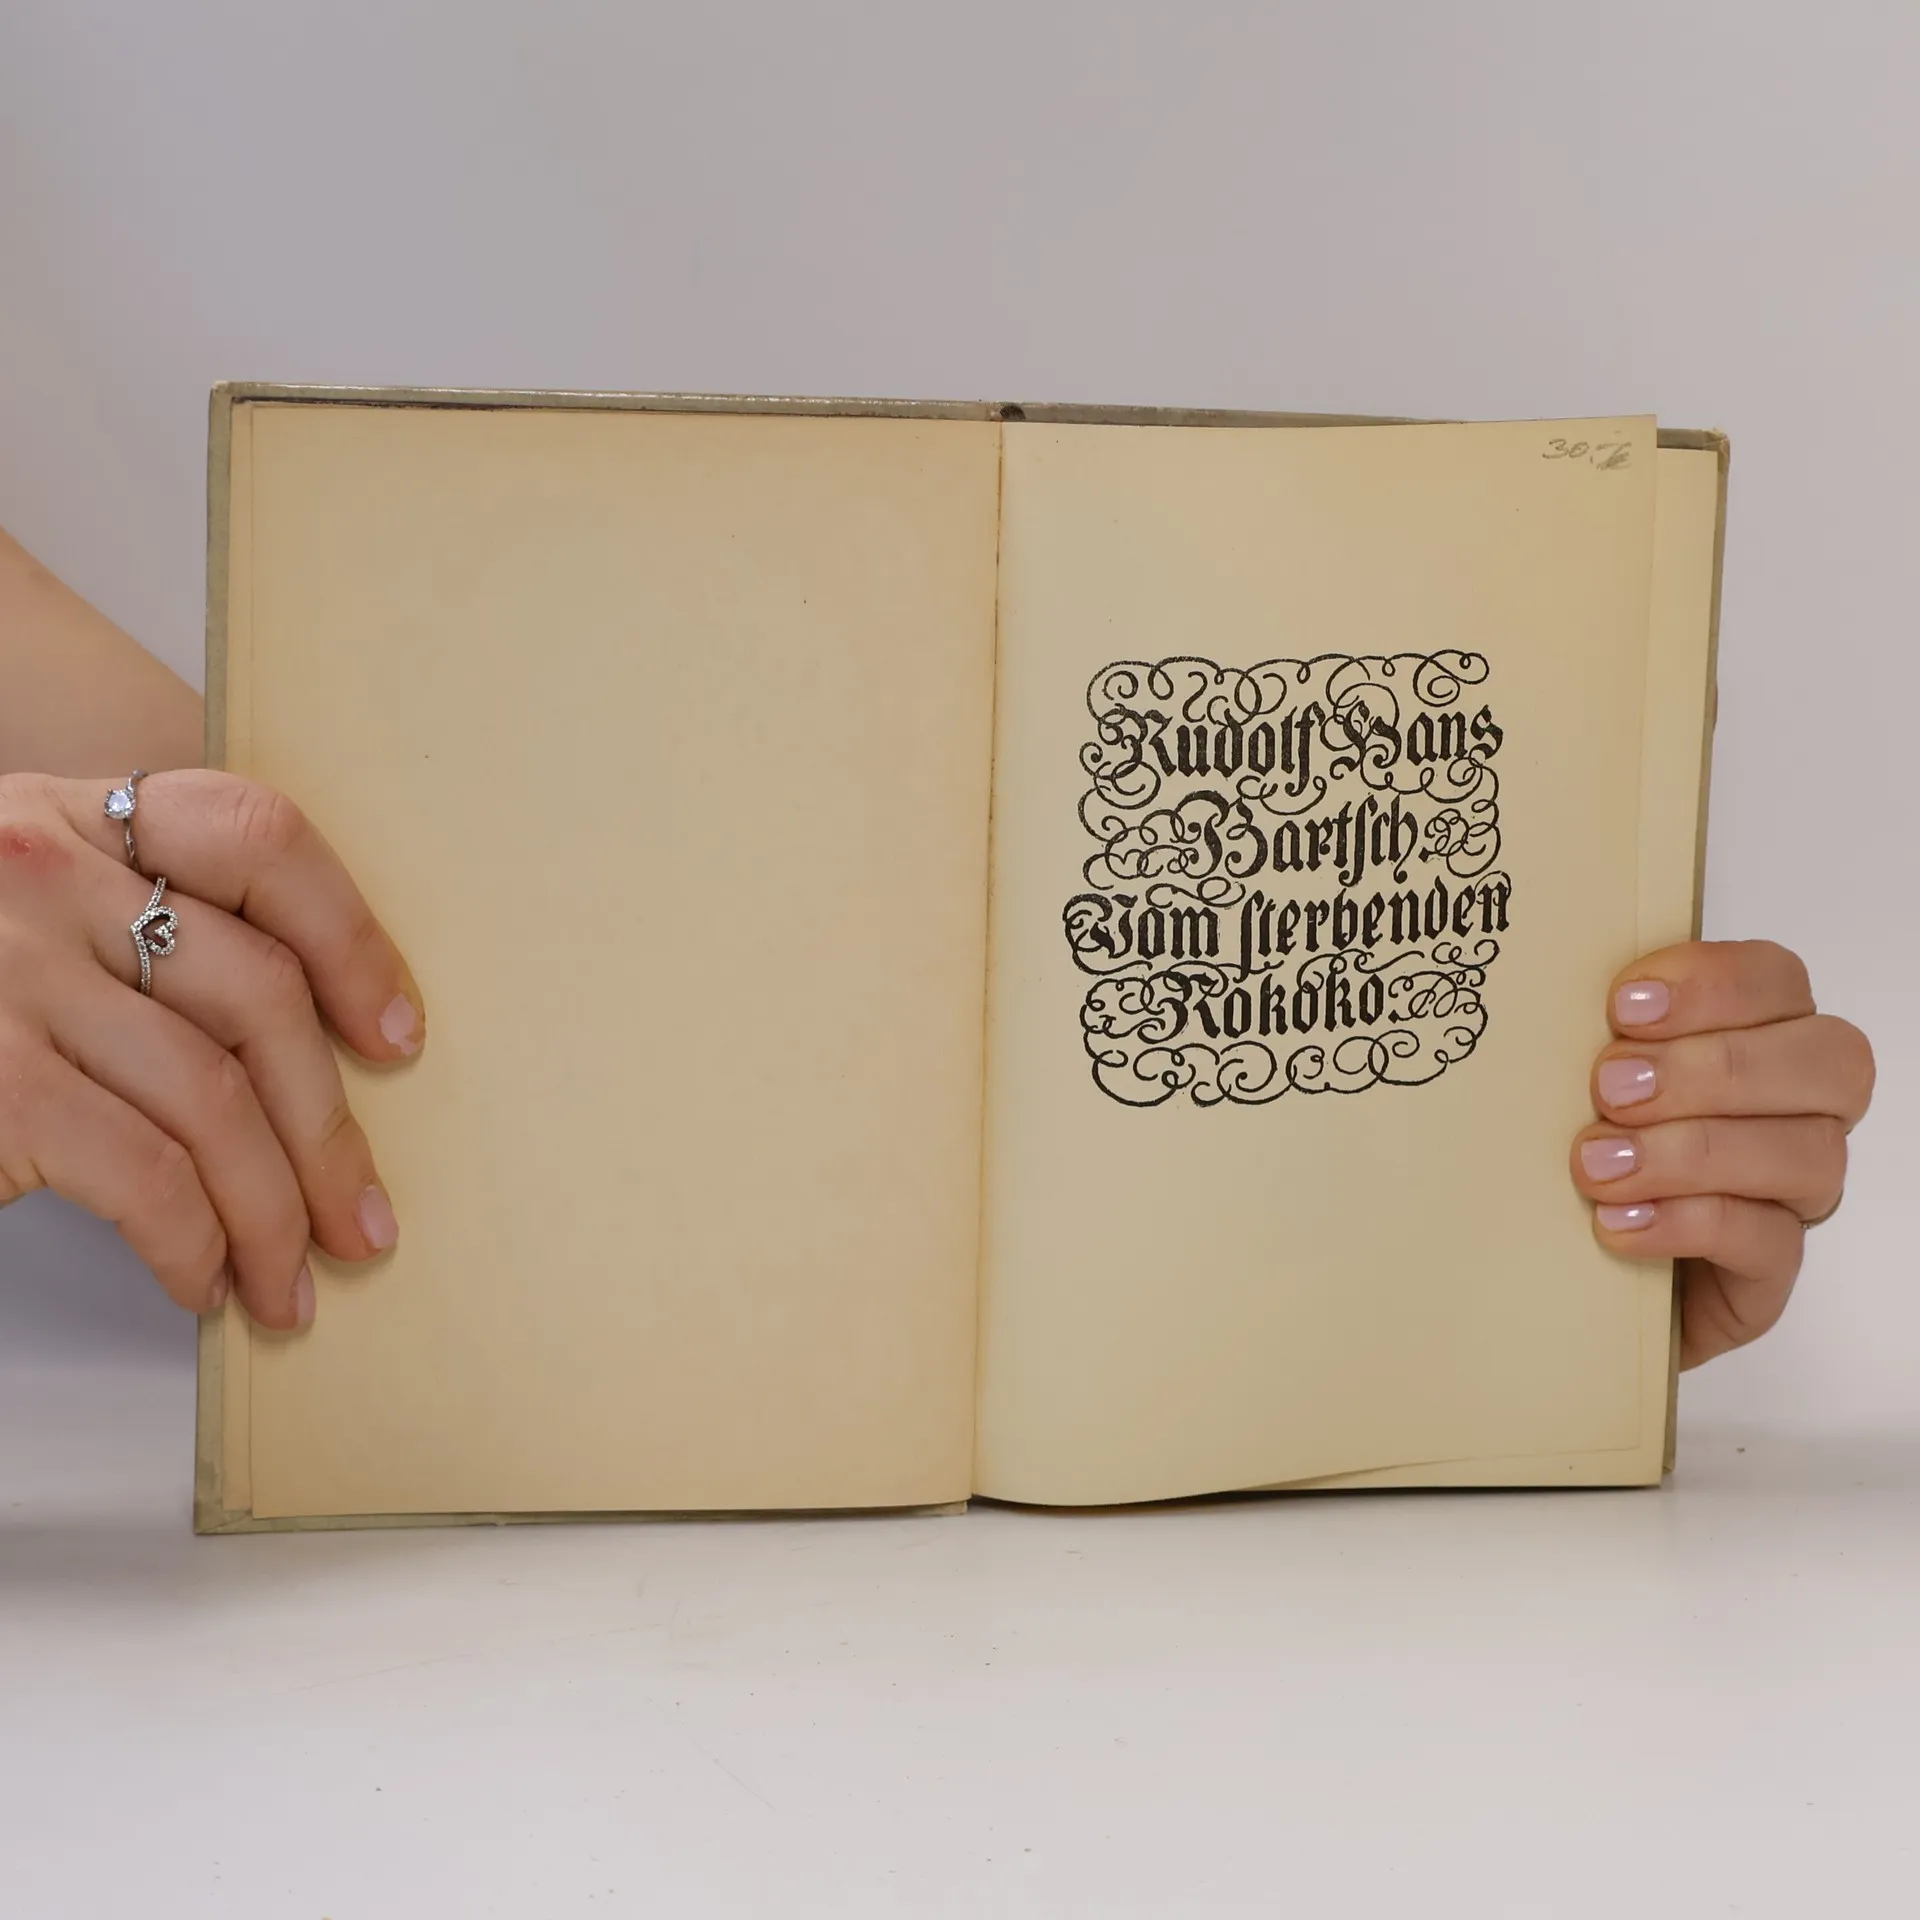 30.-
Rudolf Hans
Bartſch.
Vom ſterbenden
Rokoko.